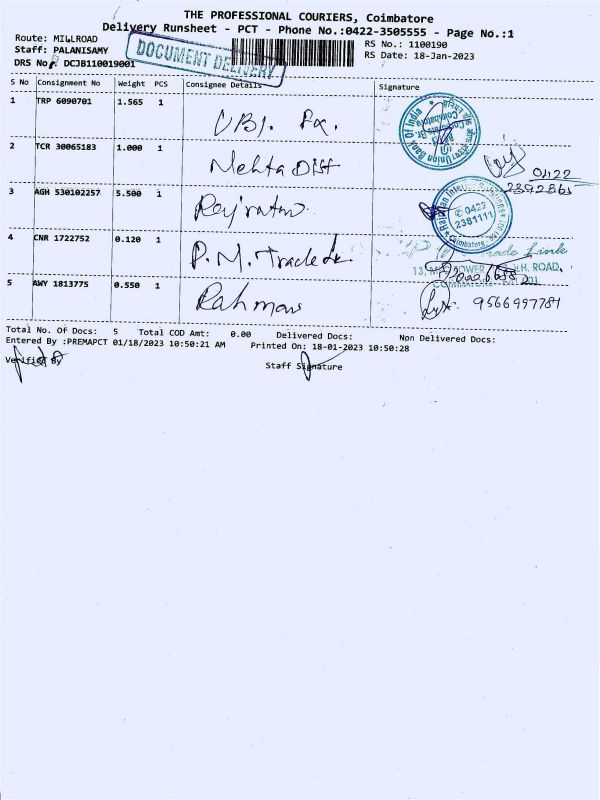 THE PROFESSIONAL COURIERS, Coimbatore
Delivery Runsheet - PCT - Phone No.:0422-3505555 - Page No.:1
Route: MILLROAD
Staff: PALANISAMY
DRS No: DCJB110019001
DOCUMENT DELIVERY
RS No.: 1100190
RS Date: 18-Jan-2023
S No Consignment No Weight PCS Consignee Details Signature
1 TRP 6090701 1.565 1 UBI.
Union Bank Of India
2 TCR 30065183 1.000 1 Mehta Dist
0422
2392865
3 AGH 530102257 5.500 1 Rajratan
✆ 0422
2381111
Coimbatore
4 CNR 1722752 0.120 1 P.M. Trade
Trade Link
13, ROAD,
5 AWY 1813775 0.550 1 Rahman
9566997781
Total No. Of Docs: 5 Total COD Amt: 0.00 Delivered Docs: Non Delivered Docs:
Entered By :PREMAPCT 01/18/2023 10:50:21 AM Printed On: 18-01-2023 10:50:28
Verified By
Staff Signature